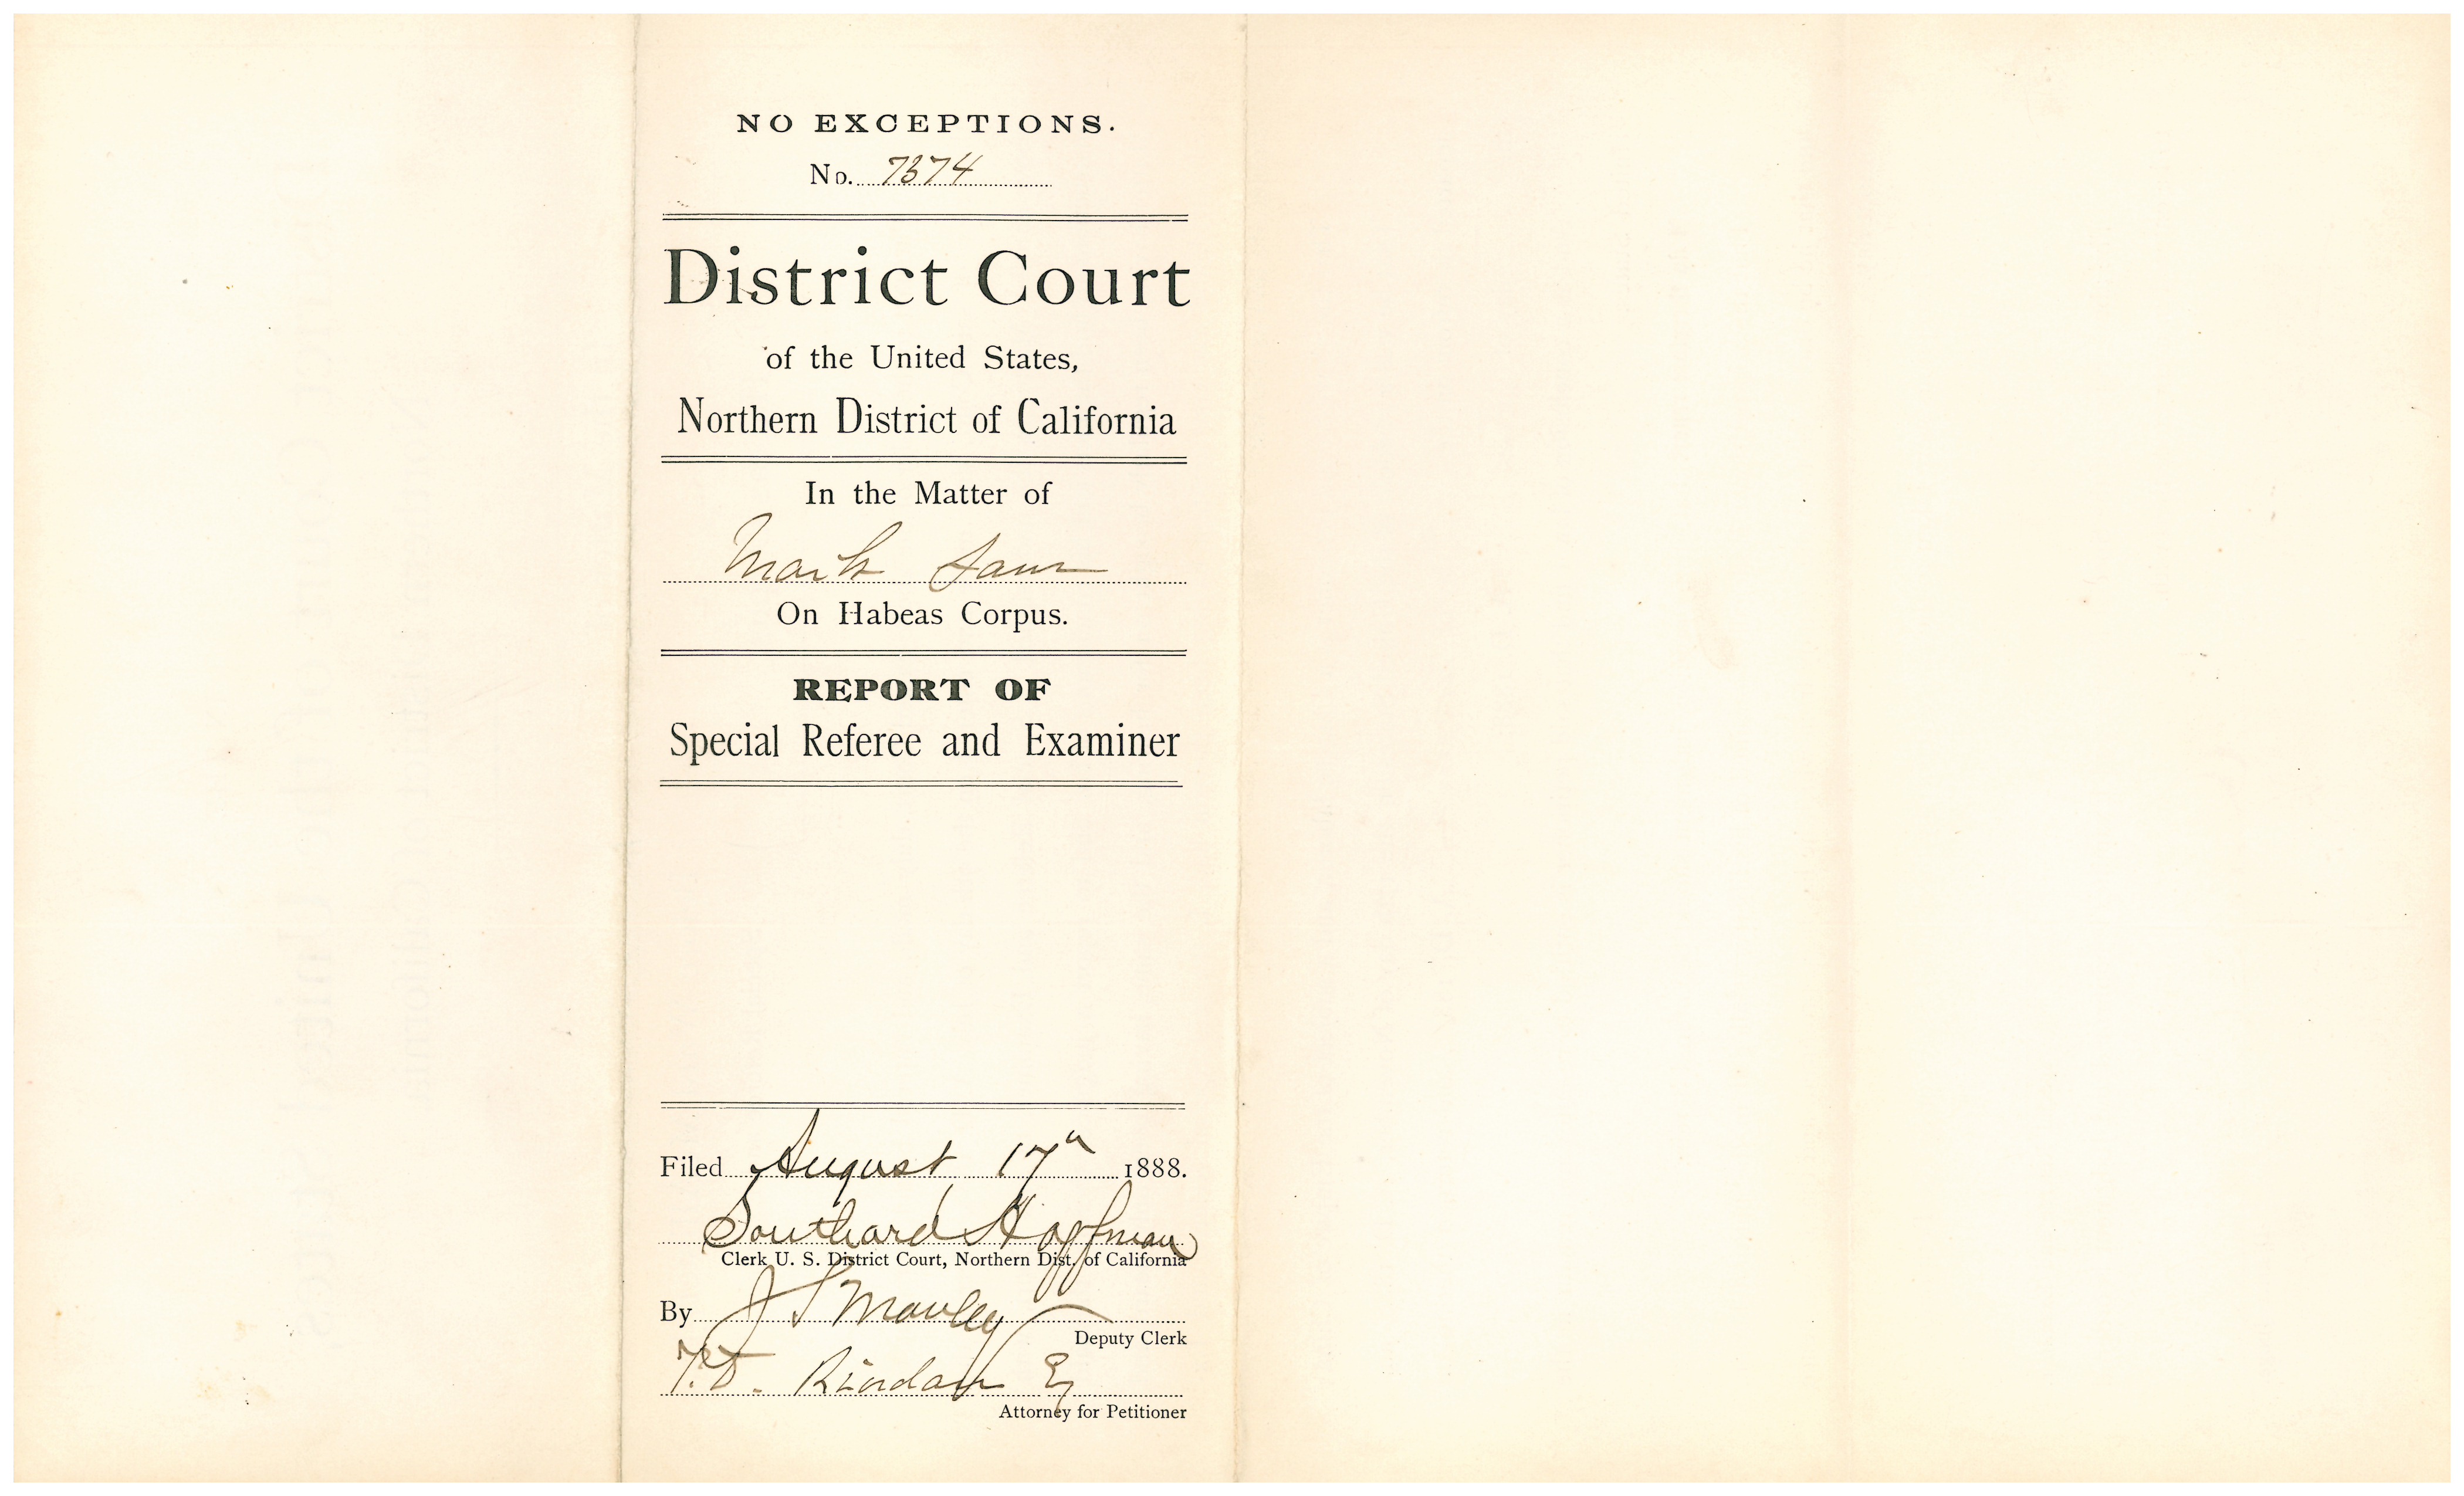 NO EXCEPTIONS.
No. 7374
District Court
of the United States,
Northern District of California
In the Matter of
Mark
On Habeas Corpus.
REPORT OF
Special Referee and Examiner
Filed August 17th 1888.
Southard Hoffman
Clerk U. S. District Court, Northern Dist. of California
By J S Manley
Deputy Clerk
T.D. Riordan Esq
Attorney for Petitioner